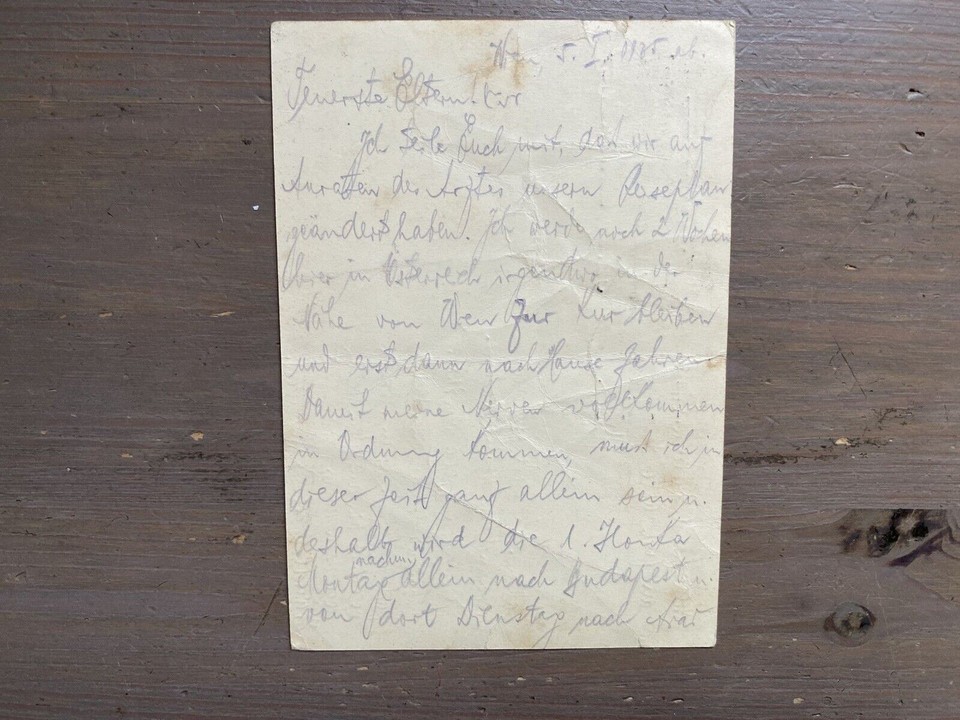 Wien, 5. I.
Teuerste Eltern!
Ich teile Euch mit, daß wir auf
Anraten des Arztes unsern Reseplan
geändert haben. Ich werde noch 2 Wochen
hier in Österreich irgendwo in der
Nähe von Wien zur Kur bleiben
und erst dann nach Hause fahren.
Damit meine Nerven vollkommen
in Ordnung kommen, muß ich in
dieser Zeit ganz allein sein u.
deshalb wird die l. Ilonka
Montag nachm. allein nach Budapest u.
von dort Dienstag nach Arad